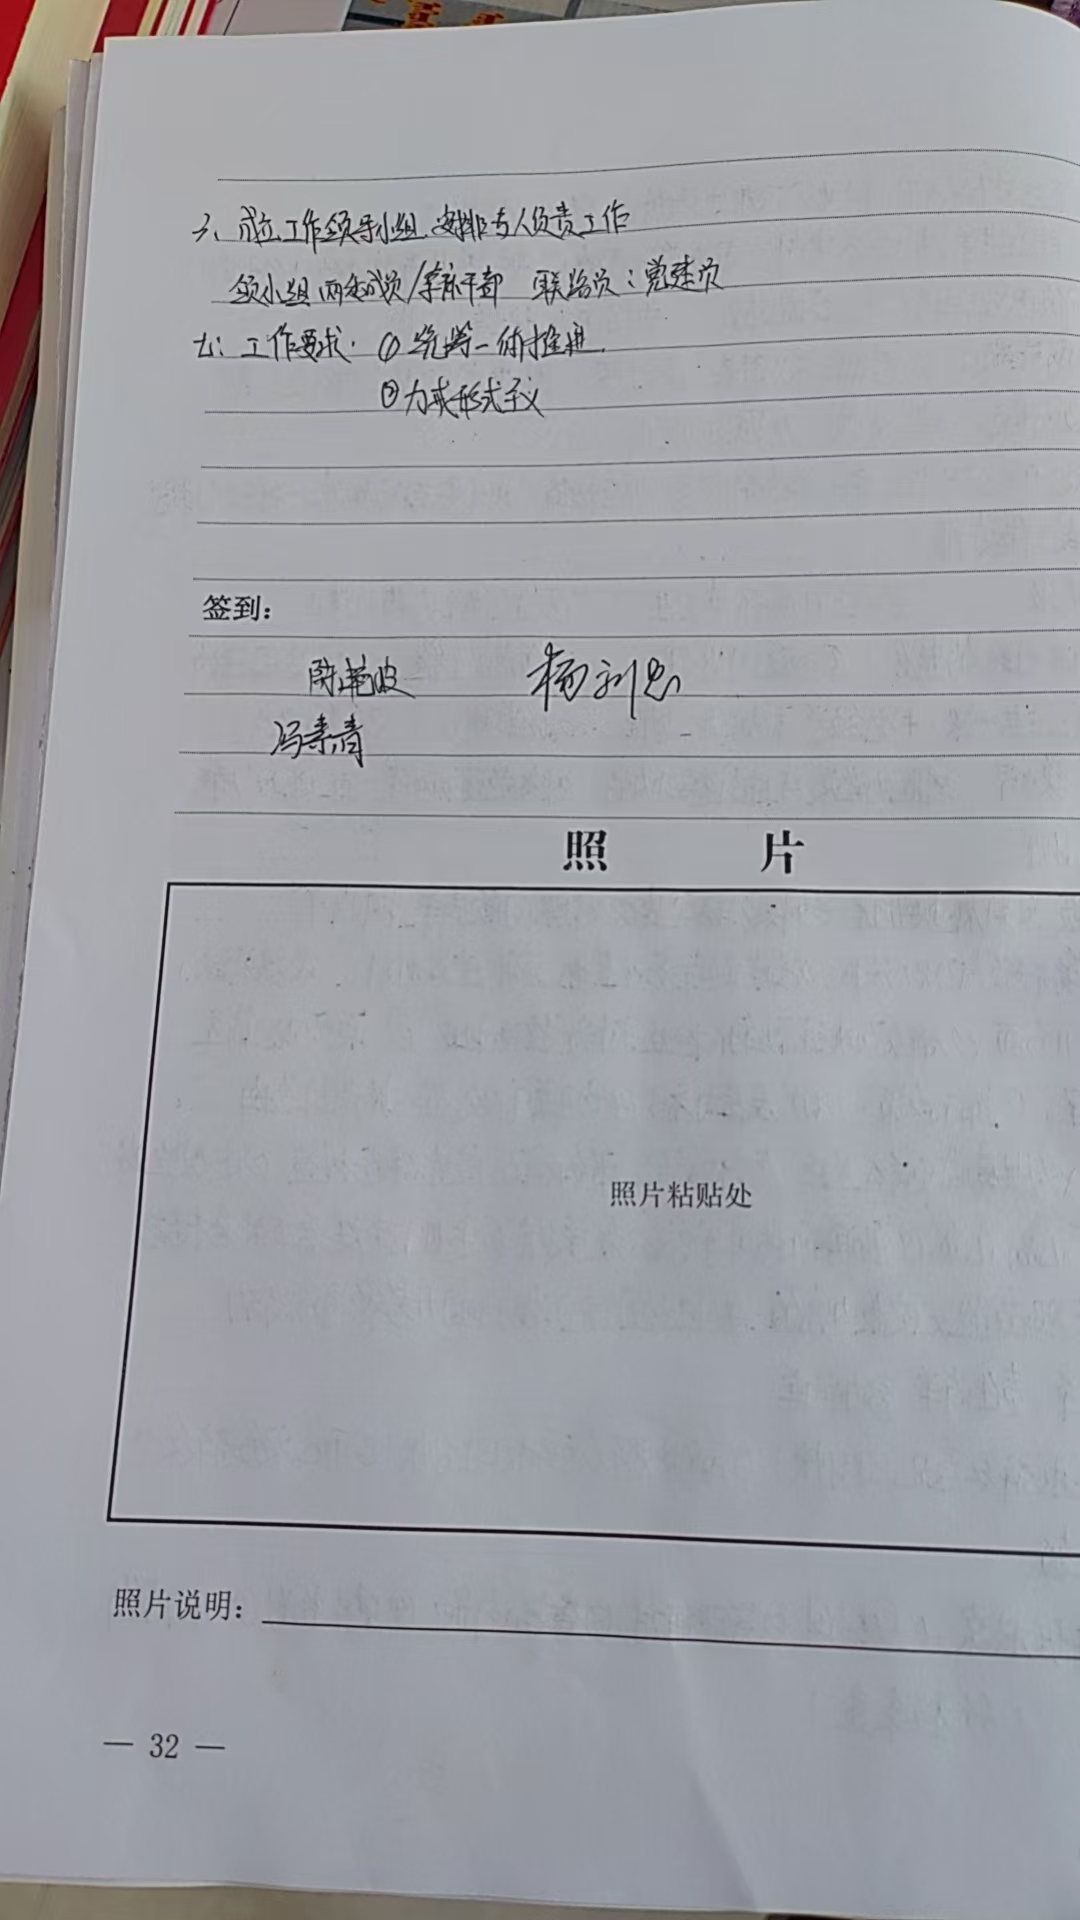 3、成立工作领导小组,安排专人负责工作
领小组 两委成员/ 联络员:党建员
七:工作要求:①统筹一体推进.
②力戒形式主义
签到:
陈艳波 杨利忠
冯素青
照 片
照片粘贴处
照片说明:
— 32 —